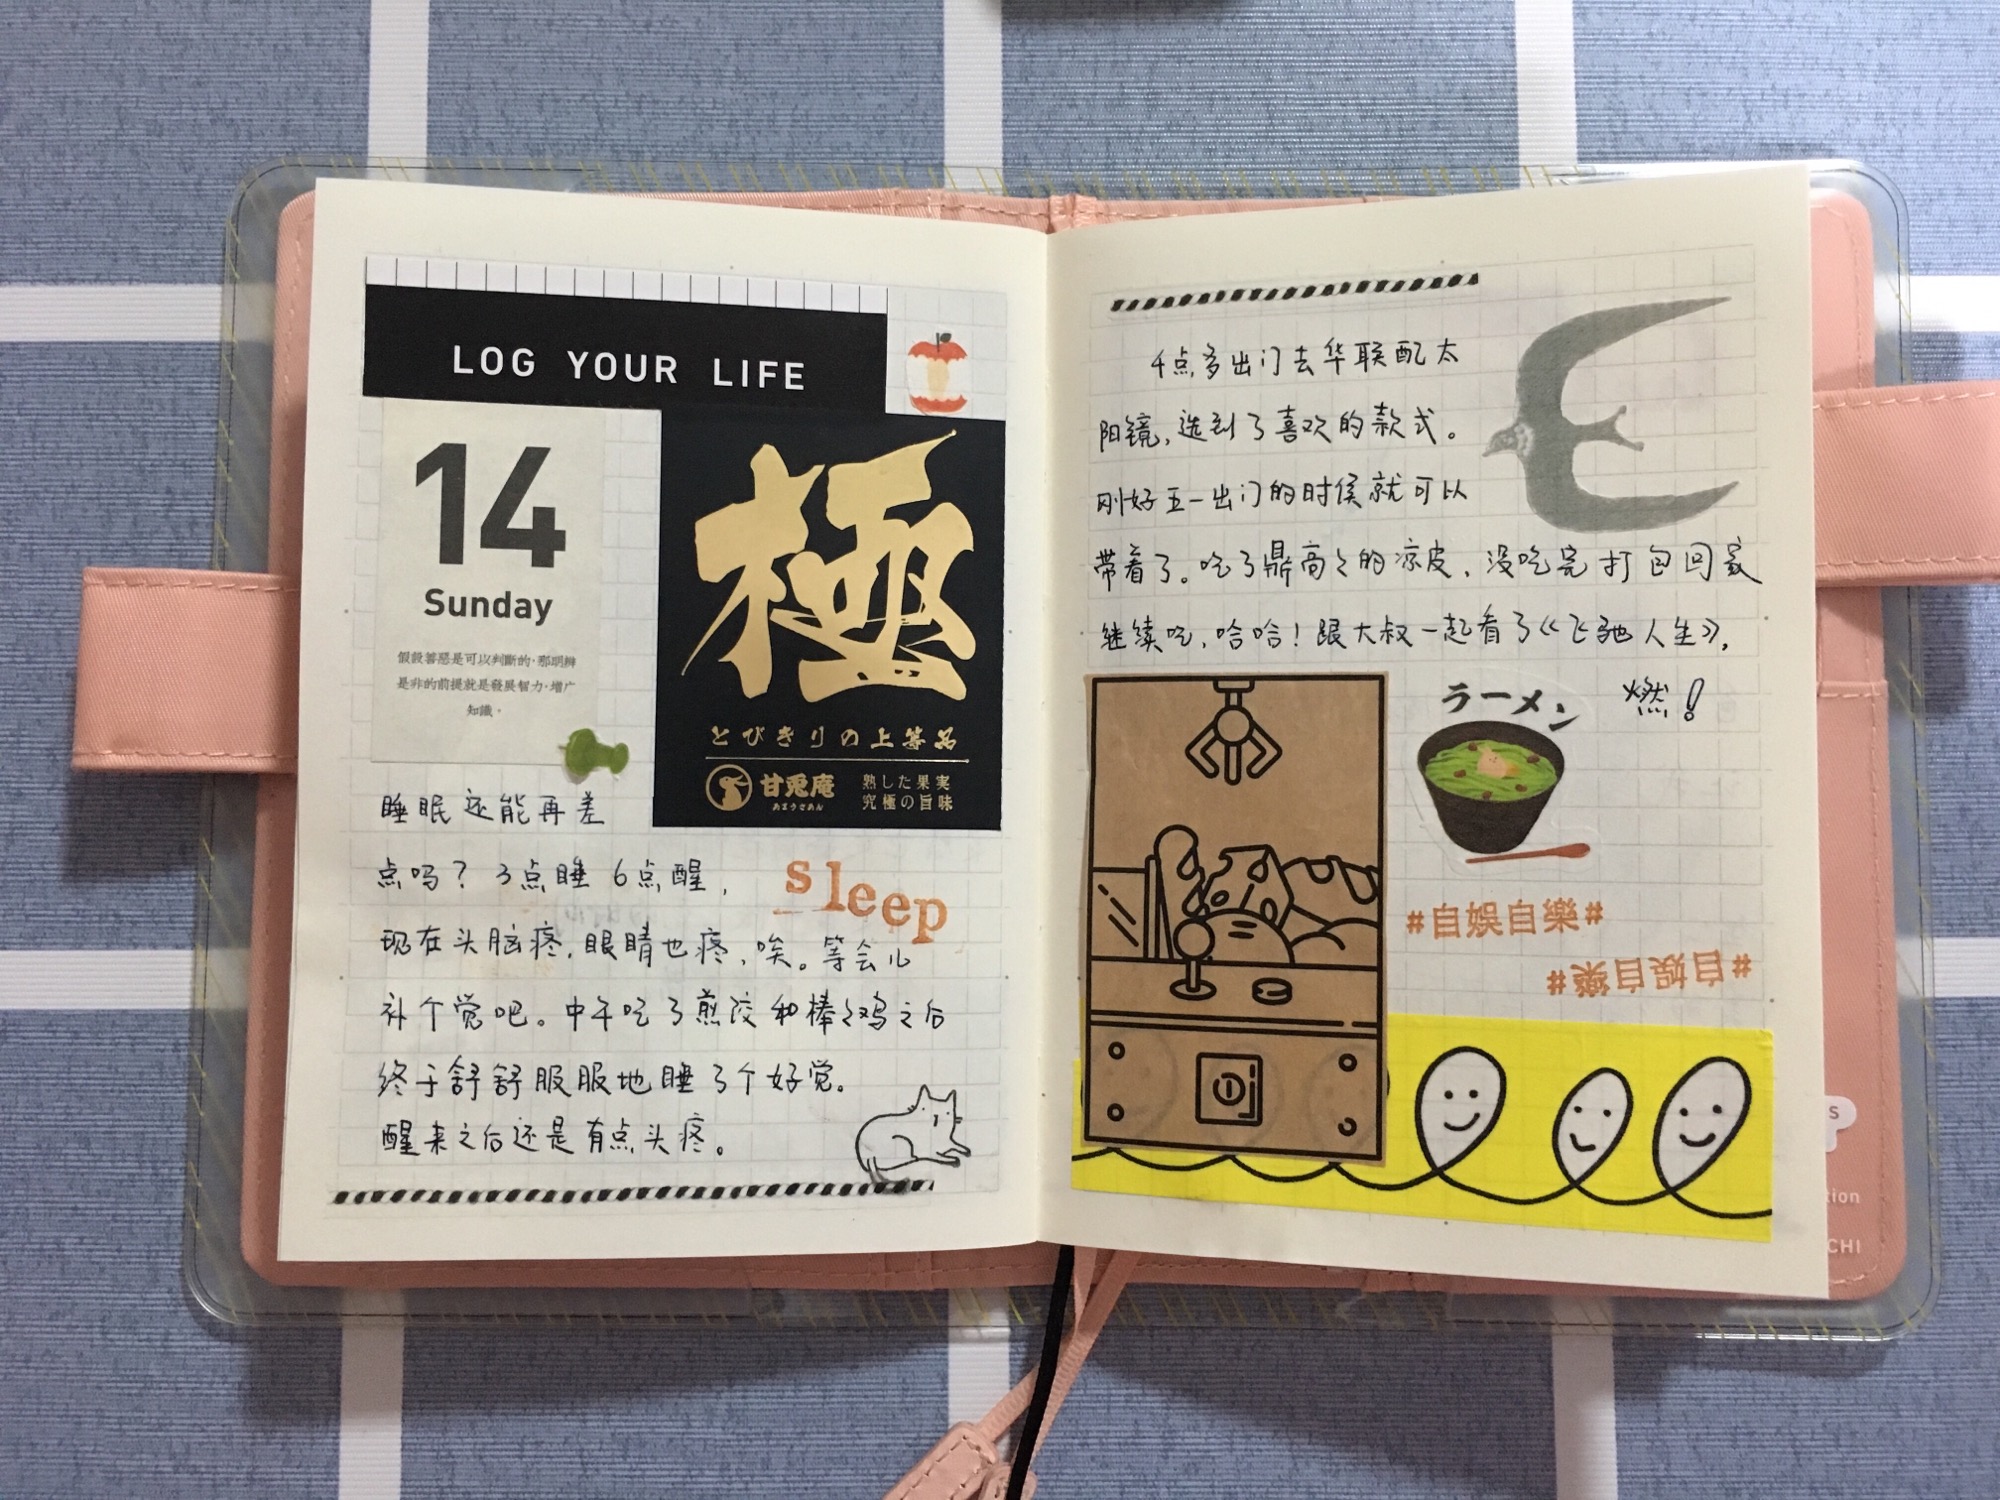 LOG YOUR LIFE
14
Sunday
假設善惡是可以判斷的·那明辨
是非的前提就是發展智力·增广
知識·
極
とびきりの上等品
甘兎庵
あまうさあん
熟した果実
究極の旨味
睡眠还能再差
点吗？3点睡 6点醒，
sleep
现在头脑疼，眼睛也疼，唉。等会儿
补个觉吧。中午吃了煎饺和棒々鸡之后
终于舒舒服服地睡了个好觉。
醒来之后还是有点头疼。
4点多出门去华联配太
阳镜，选到了喜欢的款式。
刚好五一出门的时候就可以
带着了。吃了鼎高々的凉皮，没吃完打包回家
继续吃，哈哈！跟大叔一起看了《飞驰人生》，
燃！
ラーメン
#自娛自樂#
#自娛自樂#
S
tion
CHI